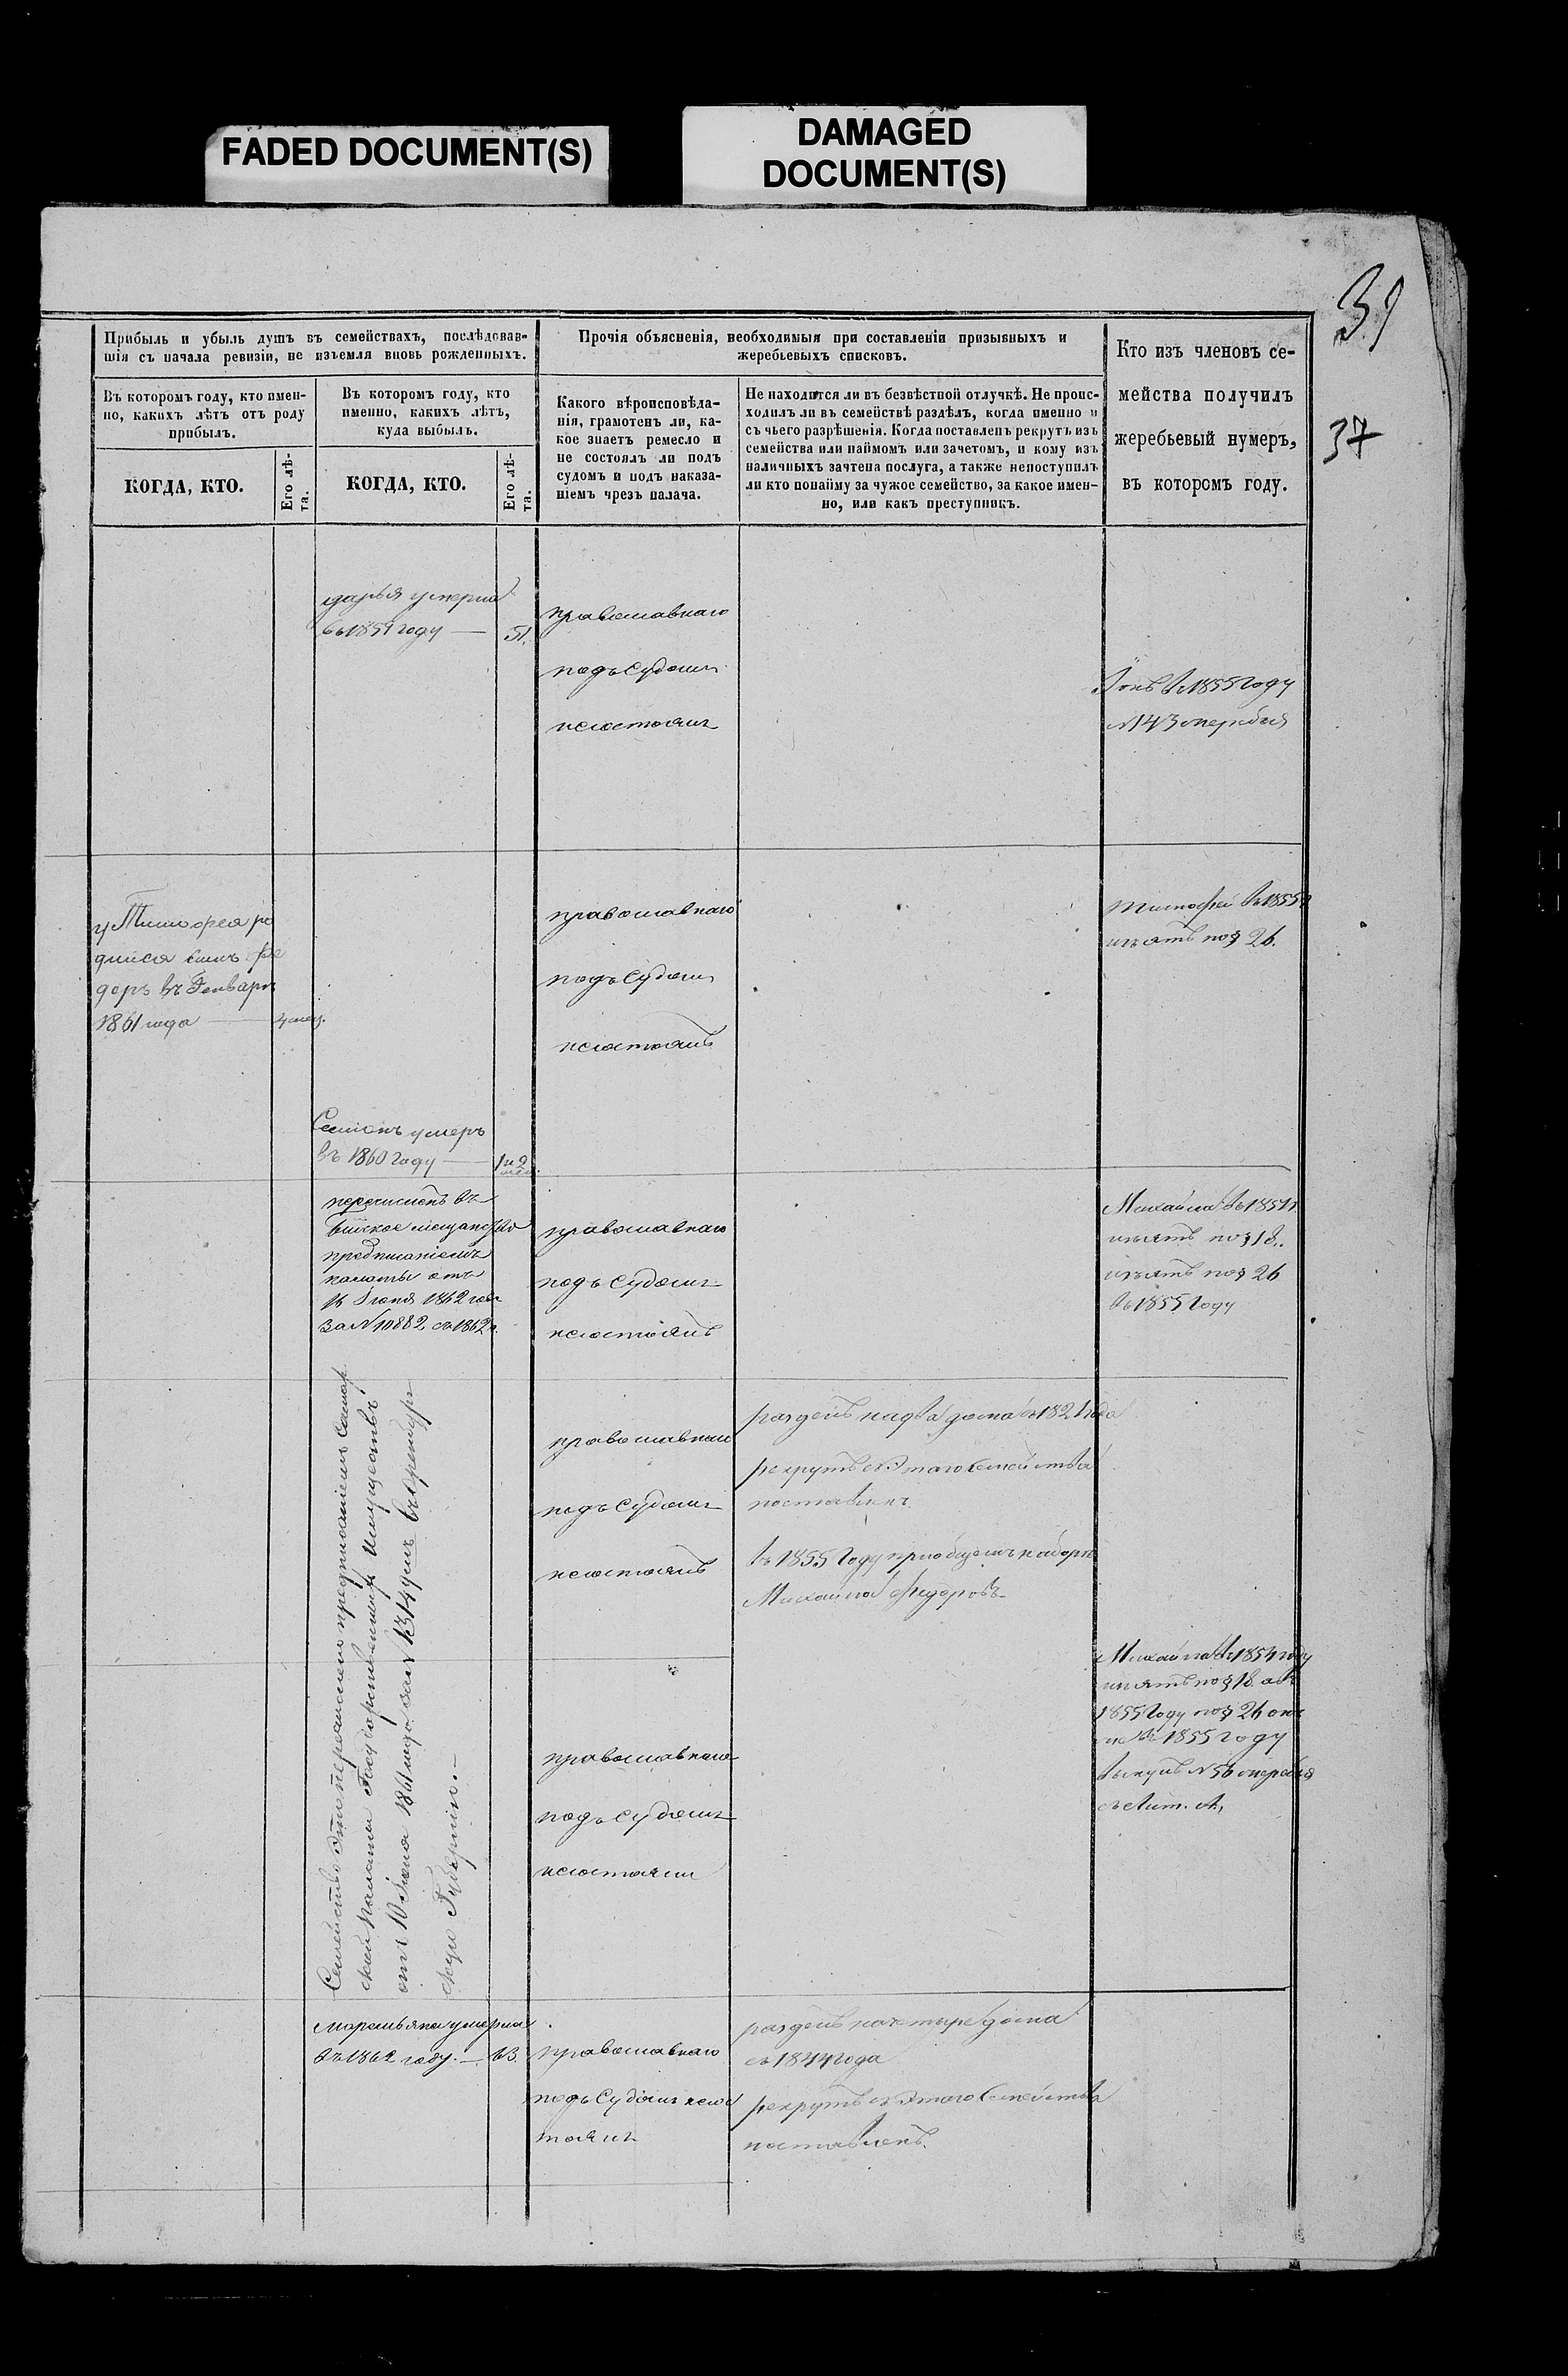 FADED DOCUMENT(S)
DAMAGED
DOCUMENT(S)
37
Прибыль и убыль душъ въ семействахъ, послѣдовав-
шія съ начала ревизіи, не изъемля вновь рожденныхъ.
Прочія объясненія, необходимыя при составленіи призывныхъ и
жеребьевыхъ списковъ.
Кто изъ членовъ се-
мейства получилъ
жеребьевый нумеръ,
въ которомъ году.
Въ которомъ году, кто имен-
но, какихъ лѣтъ отъ роду
прибылъ.
Въ которомъ году, кто
именно, какихъ лѣтъ,
куда выбылъ.
Какого вѣроисповѣда-
нія, грамотенъ ли, ка-
кое знаетъ ремесло и
не состоялъ ли подъ
судомъ и подъ наказа-
ніемъ чрезъ палача.
Не находится ли въ безвѣстной отлучкѣ. Не проис-
ходилъ ли въ семействѣ раздѣлъ, когда именно и
съ чьего разрѣшенія. Когда поставленъ рекрутъ изъ
семейства или наймомъ или зачетомъ, и кому изъ
наличныхъ зачтена послуга, а также непоступилъ
ли кто понайму за чужое семейство, за какое имен-
но, или какъ преступникъ.
КОГДА, КТО.
Его лѣ-
та.
КОГДА, КТО.
Его лѣ-
та.
дарья умерла
году
51.
православнаго
подъ судомъ
несостоялъ
въ 1855 году
№ 143 жеребья
у Тимофея ро
дился сынъ Фе
доръ въ Генваре
1861 года
4 мес.
православнаго
подъ судомъ
несостоялъ
Тимофей въ 1855
изъятъ по § 26.
Семионъ умеръ
въ 1860 году
перечисленъ въ
Бийское мещанство
предписаніемъ
палаты отъ
16 Іюня 1862 года
за № 10882 съ 1862 г.
православнаго
подъ судомъ
несостоялъ
Михайла въ
изъятъ по § 18.
изъятъ по § 26
въ 1855 году
Семейство это перечислено предписаніемъ Самар
ской палаты Государственныхъ Имуществъ
отъ 10 Іюня 1861 года за №
скую Губернію.
православнаго
подъ судомъ
несостоялъ
раздѣлъ на два дома съ 1821 года
рекрутъ съ этого семейства
поставленъ
въ 1855 году при общемъ наборе
Михайла Федоровъ
православнаго
подъ судомъ
несостояли
Михайла въ 1854 году
изъятъ по § 18. а въ
1855 году по § 26 онъ
же въ 1855 году
вынулъ № 56 жеребья
съ лит. А,
умерла
въ 1862 году.
63.
православнаго
подъ судомъ несос
тоялъ
раздѣлъ начетыре дома
съ 1844 года
рекрутъ съ этого семейства
поставленъ.